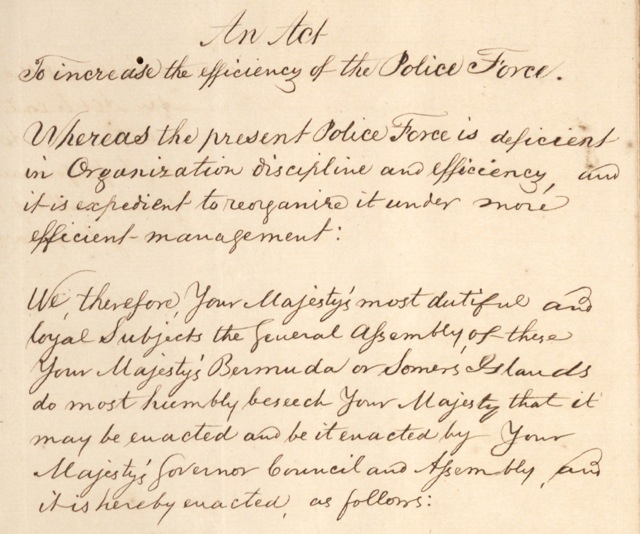 An Act
To increase the efficiency of the Police Force.
Whereas the present Police Force is deficient
in Organization discipline and efficiency, and
it is expedient to reorganize it under more
efficient management:
We, therefore, Your Majesty's most dutiful and
loyal Subjects the General Assembly, of these
Your Majesty's Bermuda or Somers Islands
do most humbly beseech Your Majesty that it
may be enacted and be it enacted by Your
Majesty's Governor Council and Assembly, and
it is hereby enacted, as follows: